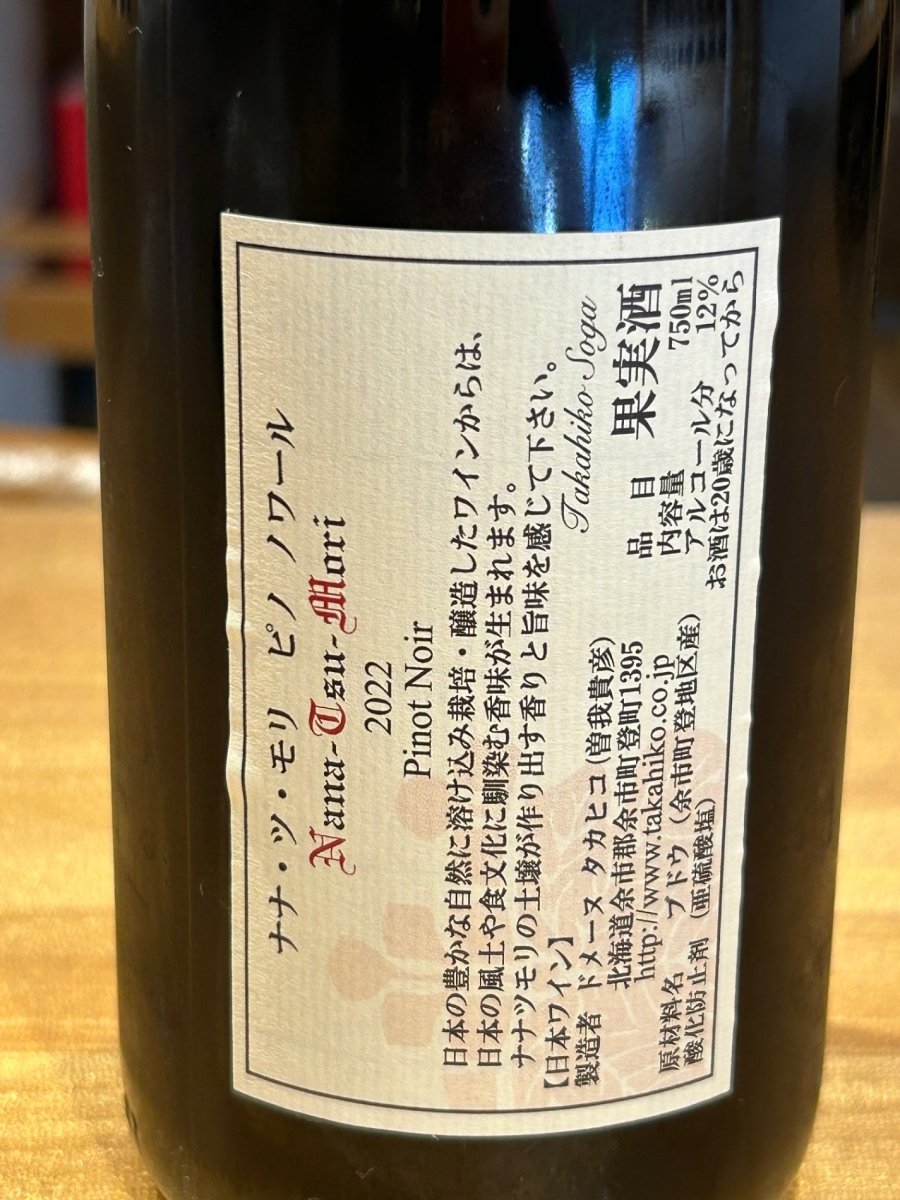 ナナ・ツ・モリ ピノ ノワール
Nana-Tsu-Mori
2022
Pinot Noir
日本の豊かな自然に溶け込み栽培・醸造したワインからは、
日本の風土や食文化に馴染む香味が生まれます。
ナナツモリの土壌が作り出す香りと旨味を感じて下さい。
Takahiko Soga
【日本ワイン】
製造者 ドメーヌ タカヒコ(曽我貴彦)
北海道余市郡余市町登町1395
http://www.takahiko.co.jp
原材料名 ブドウ(余市町登地区産)
酸化防止剤(亜硫酸塩)
品目 果実酒
内容量 750ml
アルコール分 12%
お酒は20歳になってから